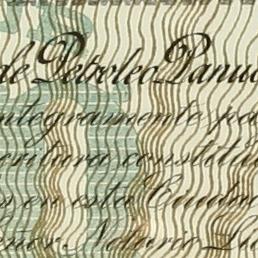 de Petroleo Panuc
ntegramente pa
critura constitu
n en esta Ciudad
eñor Notario Lu